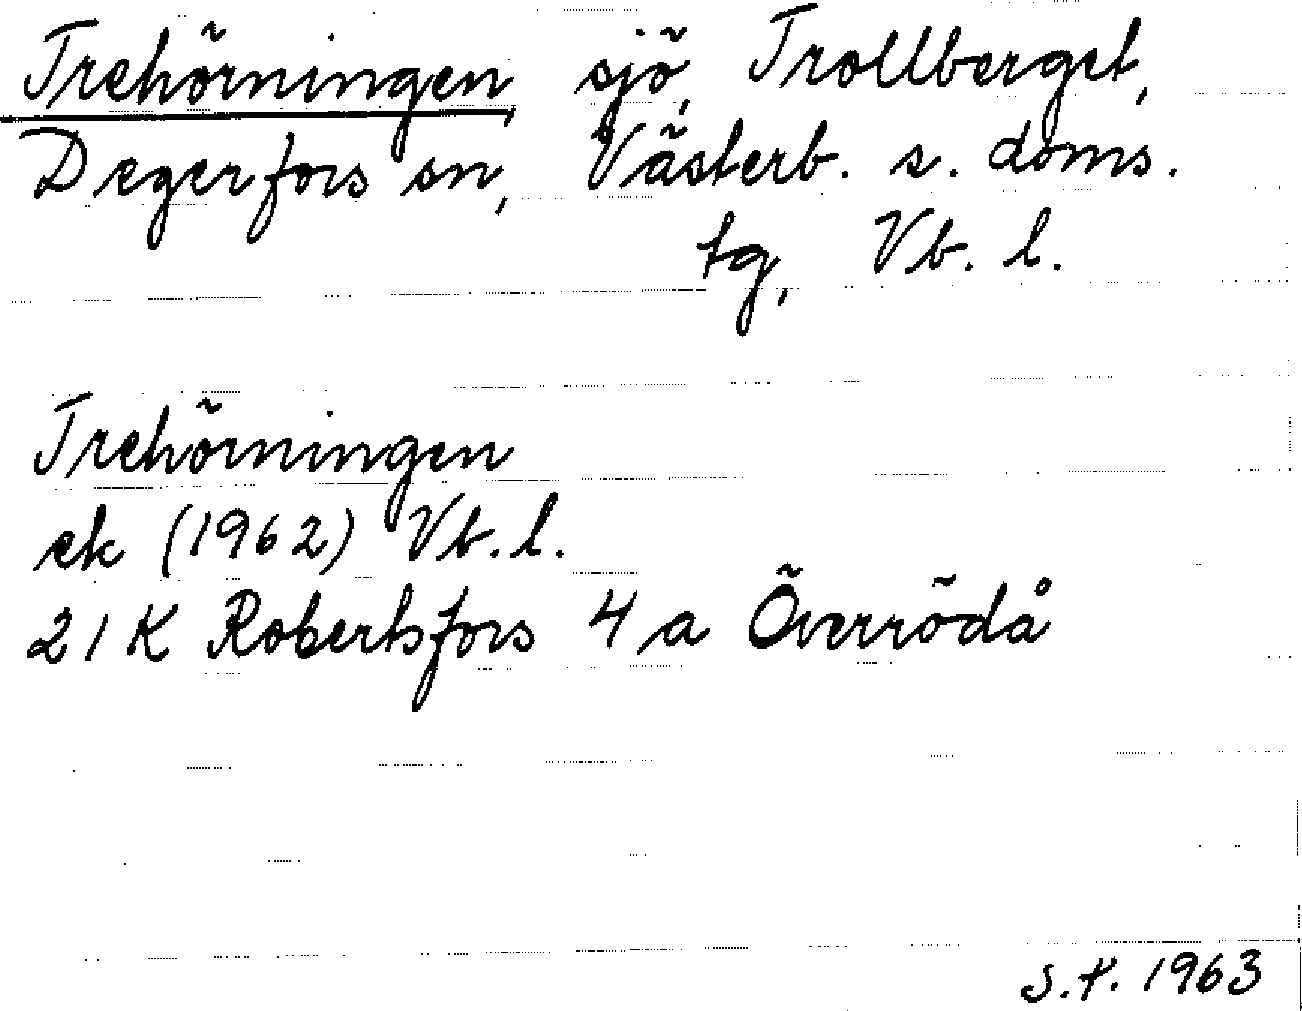 Trehörningen, sjö, Trollberget,
Degerfors sn, Västerb. s. doms.
tg, Vb. l.
Trehörningen
ek (1962) Vb. l.
21K Robertsfors 4/a Överrödå
S.F. 1963